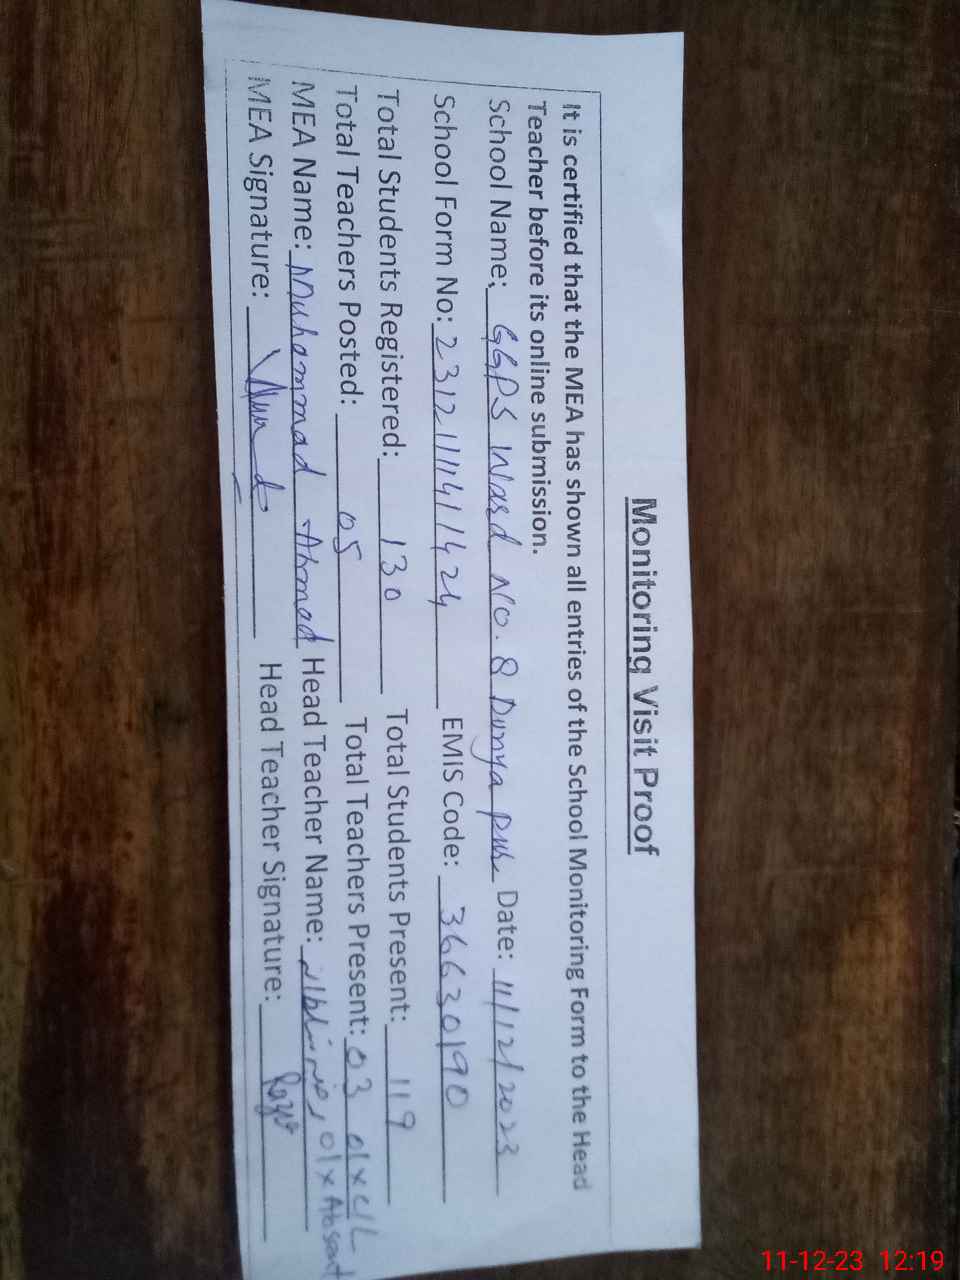 Monitoring Visit Proof
It is certified that the MEA has shown all entries of the School Monitoring Form to the Head
Teacher before its online submission.
School Name: GGPS Ward No. 8 Dunya pur Date: 11/12/2023
School Form No: 231211141424 EMIS Code: 36630190
Total Students Registered: 130 Total Students Present: 119
Total Teachers Posted: 05 Total Teachers Present: 03 01xC/L
MEA Name: Muhammad Ahmad Head Teacher Name: 01xAbsent
MEA Signature: Head Teacher Signature:
11-12-23 12:19